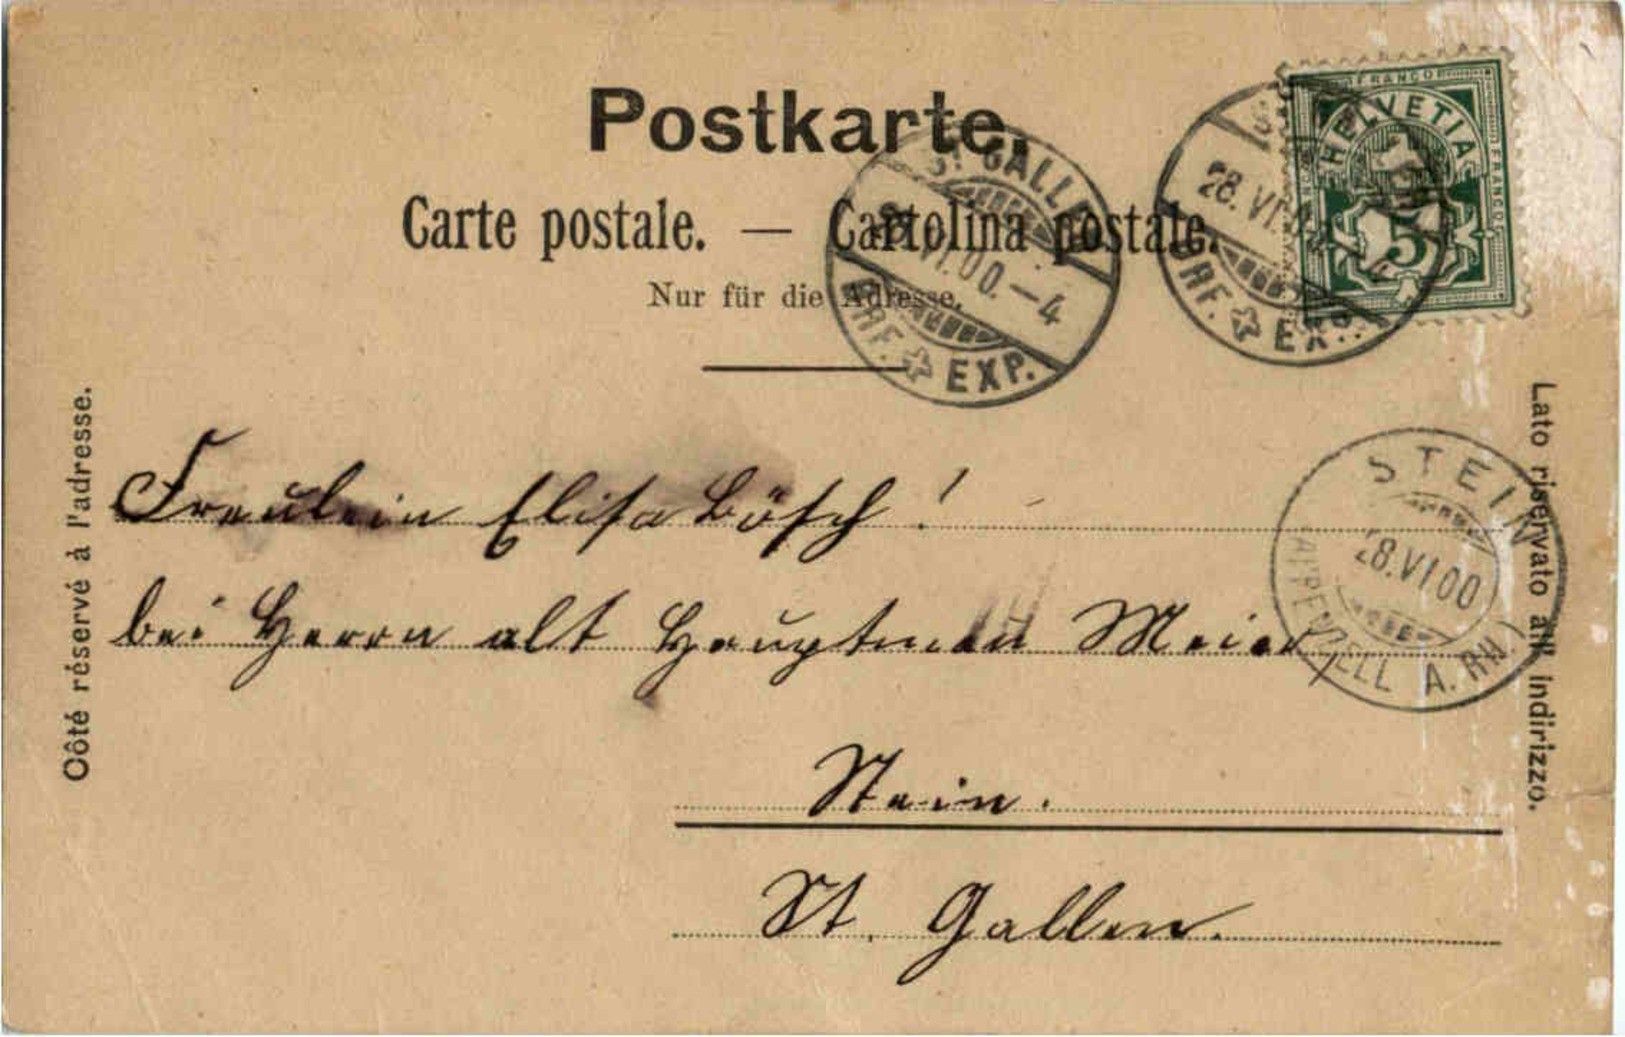 Postkarte.
Carte postale. — Cartolina postale.
Nur für die Adresse.
FRANCO
HELVETIA
FRANCO
5
ST GALLEN
28.VI.00.—4
BRF. EXP.
28.VI.
BRF. EXP.
STEIN
28.VI.00
(APPENZELL A. RH.)
Côté réservé à l'adresse.
Lato riservato all' indirizzo.
Fräulein Elisa Bösch!
bei Herrn alt Hauptmann Meier,
Stein.
St. Gallen.